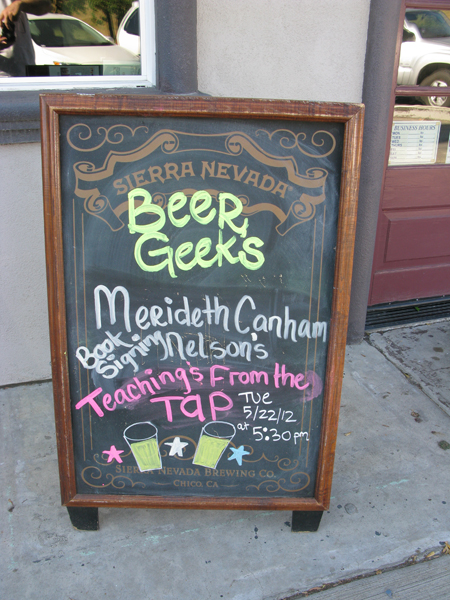 SIERRA NEVADA
Beer
Geek's
Merideth Canham
Book Signing Nelson's
Teachings From the
TAP
Tue
5/22/12
at 5:30pm
SIERRA NEVADA BREWING CO.
CHICO, CA
BUSINESS HOURS